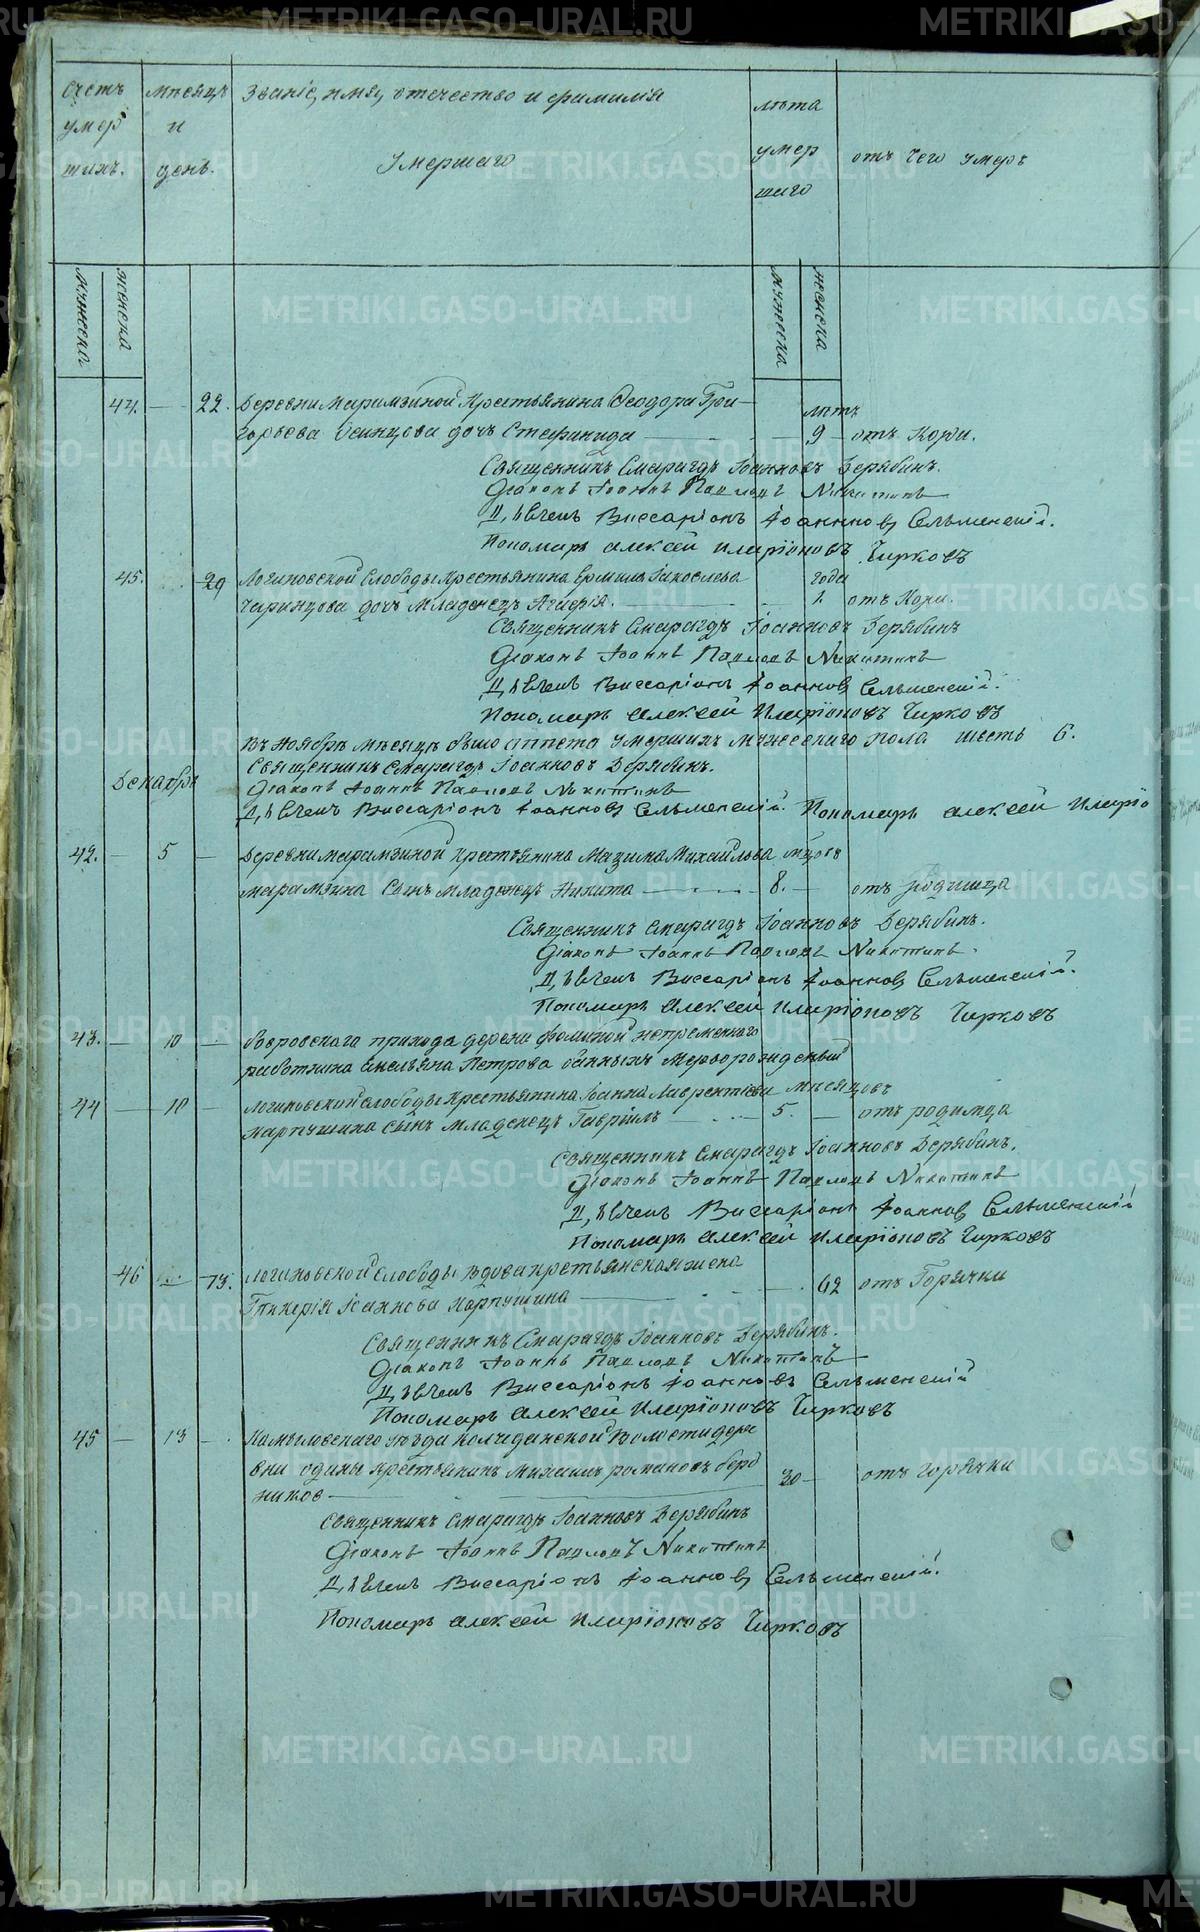 METRIKI.GASO-URAL.RU
Счетъ мѣсяцъ Званіе, имя, отечество и фамилія лѣта
умер и умер отъ чего умеръ
шихъ. день. Умершаго шаго
мужеска женска мужеска женска
44. — 22. Деревни Марамзиной Крестьянина Ѳеодора Гри- лѣтъ
горьева Осинцова дочь Стефанида — 9 — отъ Кори.
Священникъ Смарагдъ Іоанновъ Дерябинъ.
Діаконъ Іоаннъ Павловъ Никитинъ
Дьячекъ Виссаріонъ Іоанновъ Сельменскій.
Пономарь Алексей Иларіоновъ Чирковъ
45. 29 Логиновской Слободы Крестьянина Ермила Іаковлева года
дочь Младенецъ — 1. отъ Кори.
Священникъ Смарагдъ Іоанновъ Дерябинъ
Діаконъ Іоаннъ Павловъ Никитинъ
Дьячекъ Виссаріонъ Іоанновъ Сельменскій.
Пономарь Алексей Иларіоновъ Чирковъ
Въ Ноябрѣ мѣсяцѣ было отпето умершихъ мужескаго пола шесть 6.
Священникъ Смарагдъ Іоанновъ Дерябинъ.
Декабрь Діаконъ Іоаннъ Павловъ Никитинъ
Дьячекъ Виссаріонъ Іоанновъ Сельменскій. Пономарь Алексей Иларіо
42. — 5 — Деревни марамзиной крестьянина Михайлова мѣсяцовъ
марамзина Сынъ Младенецъ Никита — 8. — отъ родимца
Священникъ Смарагдъ Іоанновъ Дерябинъ.
Діаконъ Іоаннъ Павловъ Никитинъ.
Дьячекъ Виссаріонъ Іоанновъ Сельменскій.
Пономарь Алексей Иларіоновъ Чирковъ
43. — 10 — прихода дерени непременнаго
работника Емельяна Петрова мерворожденый
44 — 10 — Логиновской слободы Крестьянина Іоанна Лаврентіева мисяцовъ
Карпушина сынъ младенецъ Гавріилъ — 5. — отъ родимца
Священникъ Смарагдъ Іоанновъ Дерябинъ.
Діаконъ Іоаннъ Павловъ Никитинъ
Дьячекъ Виссаріонъ Іоанновъ Сельменскій
Пономарь Алексей Иларіоновъ Чирковъ
46 — 13. Логиновской Слободы вдова крестьянская жена
Гликерія Іоаннова Карпушина — 62 отъ Горячки
Священникъ Смарагдъ Іоанновъ Дерябинъ.
Діаконъ Іоаннъ Павловъ Никитинъ
Дьячекъ Виссаріонъ Іоанновъ Сельменскій
Пономарь Алексей Иларіоновъ Чирковъ
45 — 13 — Камыловскаго уѣзда Колчеданской Волости дере
вни Крестьянинъ Михаилъ романовъ берд 30 — отъ горячки
никовъ —
Священникъ Смарагдъ Іоанновъ Дерябинъ
Діаконъ Іоаннъ Павловъ Никитинъ
Дьячекъ Виссаріонъ Іоанновъ Сельменскій.
Пономарь Алексей Иларіоновъ Чирковъ